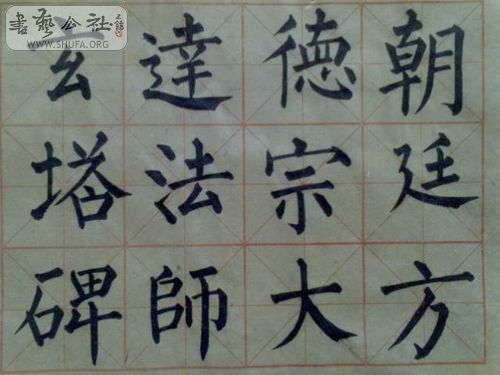 書藝公社
WWW.SHUFA.ORG
朝廷方
德宗大
達法師
玄塔碑